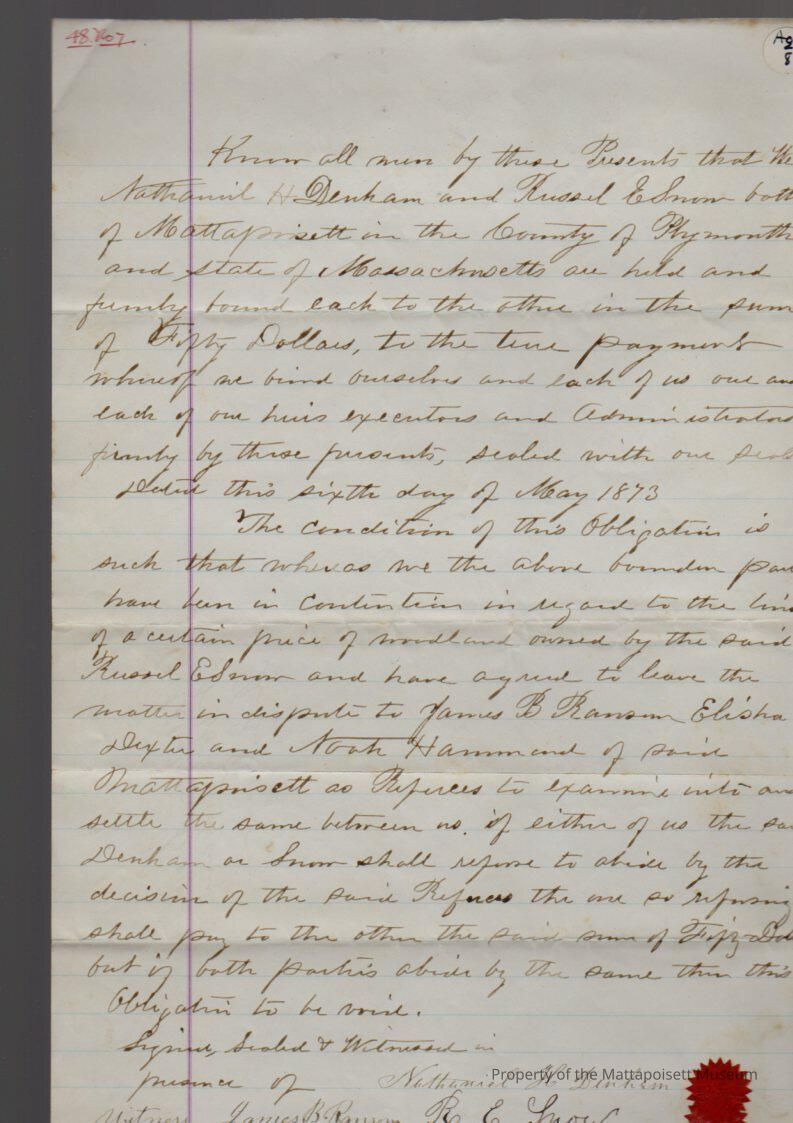 48.207
Know all men by these Presents that We
Nathaniel H Denham and Russel E Snow both
of Mattapoisett in the County of Plymouth
and state of Massachusetts are held and
firmly bound each to the other in the sum
of Fifty Dollars, to the true payment
whereof we bind ourselves and each of us our an
each of our heirs executors and Administrators
firmly by these presents, sealed with our seals
Dated this sixth day of May 1873
The condition of this Obligation is
such that whereas we the above bounden par
have been in contention in regard to the line
of a certain piece of woodland owned by the said
Russel E Snow and have agreed to leave the
matter in dispute to James B Ransom Elisha
Dexter and Noah Hammond of said
Mattapoisett as Referees to examine into and
settle the same between us. if either of us the sa
Denham or Snow shall refuse to abide by the
decision of the said Referees the one so refusing
shall pay to the other the said sum of Fifty Dol
but if both parties abide by the same then this
Obligation to be void.
Signed, Sealed & Witnessed in
presence of Nathaniel H Denham
Witness James B. Ransom R E Snow
Property of the Mattapoisett Museum